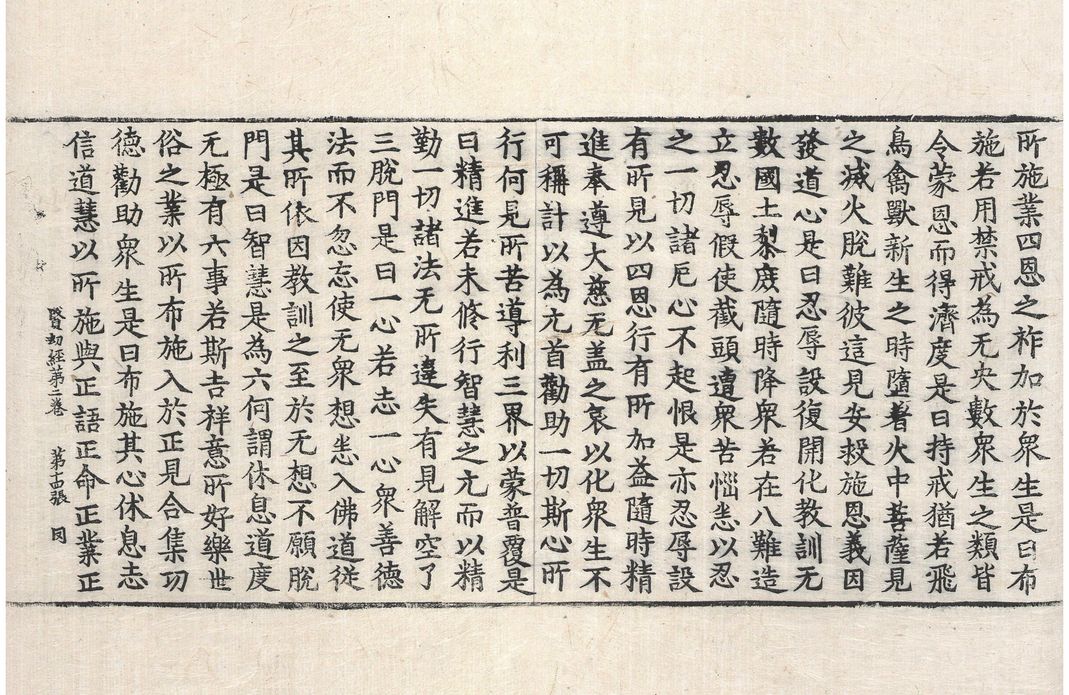 所施業四恩之祚加於衆生是曰布
施若用禁戒為无央數衆生之類皆
令蒙恩而得濟度是曰持戒猶若飛
鳥禽獸新生之時墮著火中菩薩見
之滅火脫難彼這見安救施恩義因
發道心是曰忍辱設復開化教訓无
數國土黎庶隨時降衆若在八難造
立忍辱假使截頭遭衆苦惱悉以忍
之一切諸厄心不起恨是亦忍辱設
有所見以四恩行有所加益隨時精
進奉遵大慈无盖之哀以化衆生不
可稱計以為元首勸助一切斯心所
行何見所苦導利三界以蒙普覆是
曰精進若未修行智慧之元而以精
勤一切諸法无所違失有見解空了
三脫門是曰一心若志一心衆善德
法而不忽忘使无衆想悉入佛道從
其所依因教訓之至於无想不願脫
門是曰智慧是為六何謂休息道度
无極有六事若斯吉祥意所好樂世
俗之業以所布施入於正見合集功
德勸助衆生是曰布施其心休息志
信道慧以所施與正語正命正業正
賢劫經第二卷 第十四張 同